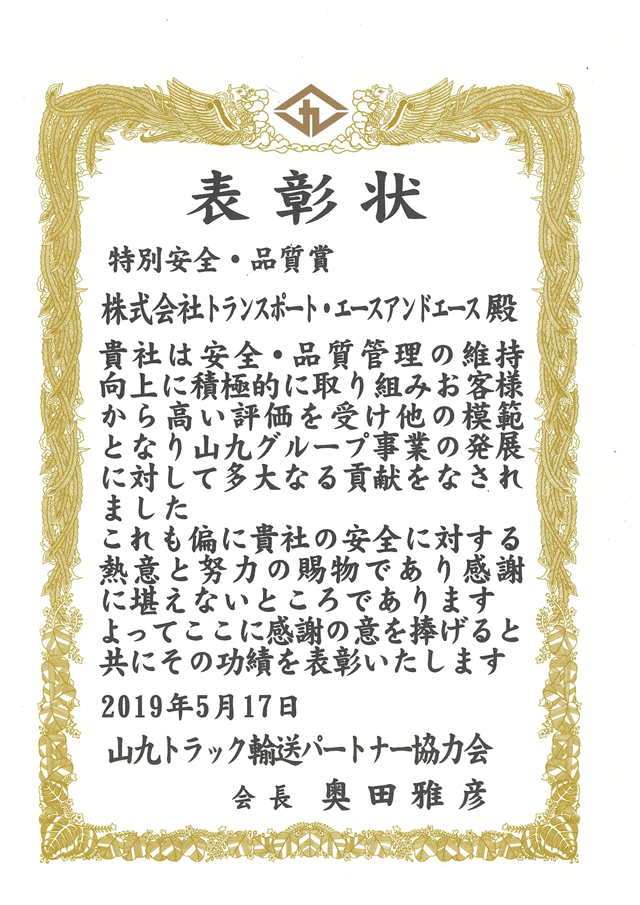 九
表彰状
特別安全・品質賞
株式会社トランスポート・エースアンドエース殿
貴社は安全・品質管理の維持
向上に積極的に取り組みお客様
から高い評価を受け他の模範
となり山九グループ事業の発展
に対して多大なる貢献をなされ
ました
これも偏に貴社の安全に対する
熱意と努力の賜物であり感謝
に堪えないところであります
よってここに感謝の意を捧げると
共にその功績を表彰いたします
2019年5月17日
山九トラック輸送パートナー協力会
会長 奥田雅彦